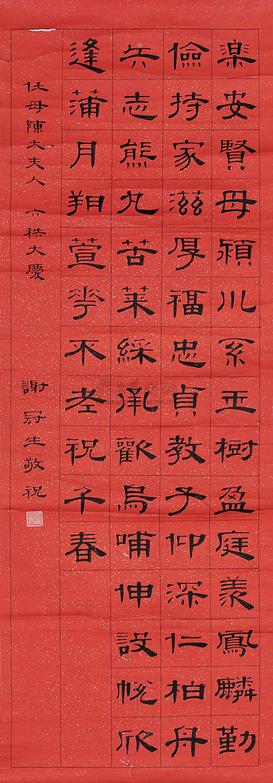 樂安賢母潁川系玉樹盈庭羨鳳麟勤
儉持家滋厚福忠貞教子仰深仁柏舟
矢志熊丸苦萊綵承歡烏哺伸設帨欣
逢蒲月朔萱花不老祝千春
任母陳太夫人 六秩大慶 謝冠生敬祝